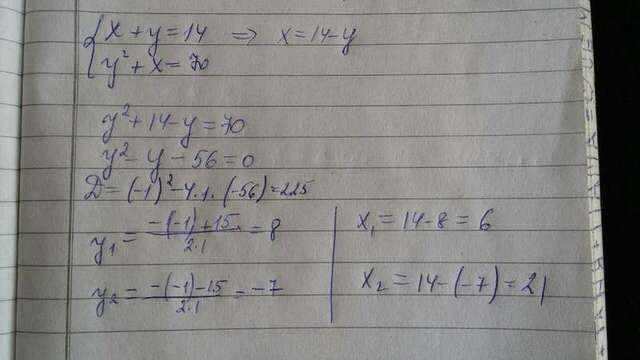 { x + y = 14 ⇒ x = 14 - y
y² + x = 70
y² + 14 - y = 70
y² - y - 56 = 0
Д = (-1)² - 4 . 1 . (-56) = 225
y₁ = (-(-1) + 15) / (2 . 1) = 8
y₂ = (-(-1) - 15) / (2 . 1) = -7
x₁ = 14 - 8 = 6
x₂ = 14 - (-7) = 21